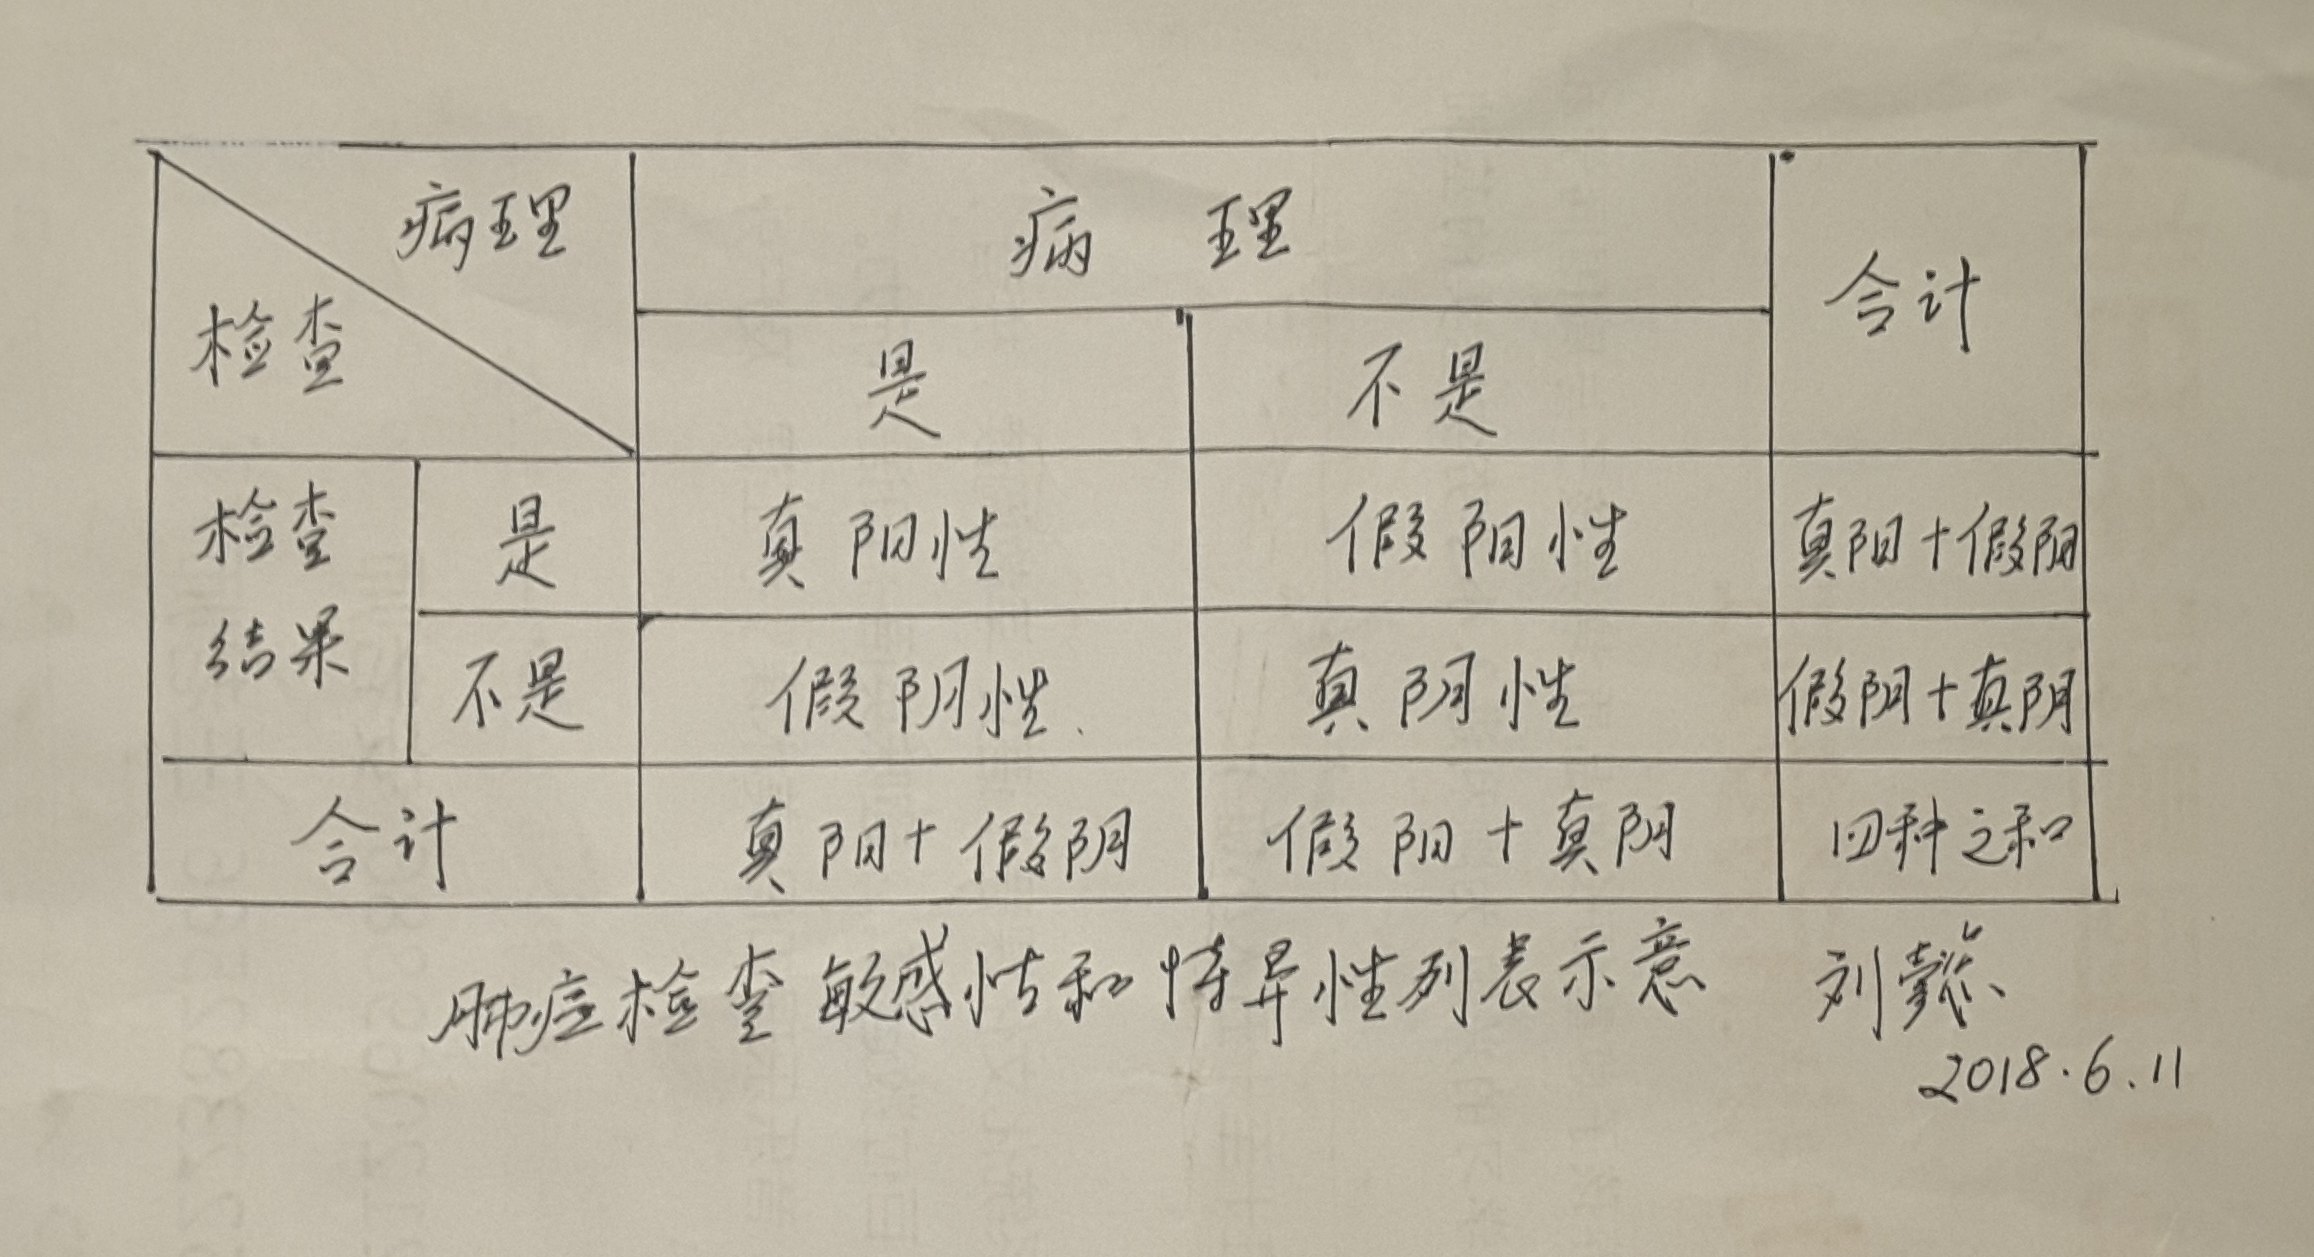 病理 病 理 合计
检查 是 不是
检查 是 真阳性 假阳性 真阳+假阳
结果 不是 假阴性 真阴性 假阴+真阴
合计 真阳+假阴 假阳+真阴 四种之和
肺癌检查敏感性和特异性列表示意 刘懿
2018.6.11